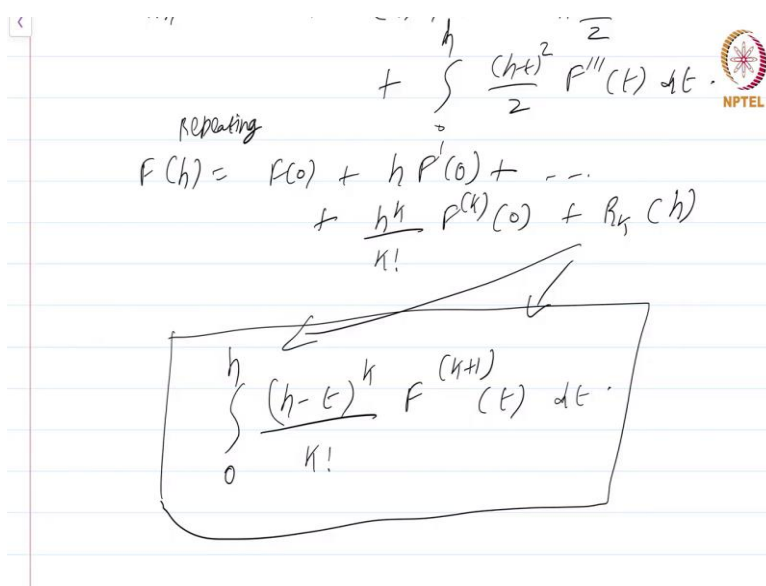 2
+ ∫₀ʰ (h-t)²/2 F'''(t) dt.
NPTEL
Repeating
F(h) = F(0) + h F'(0) + ----
+ hᵏ/k! F⁽ᵏ⁾(0) + Rₖ(h)
∫₀ʰ (h-t)ᵏ/k! F⁽ᵏ⁺¹⁾(t) dt.